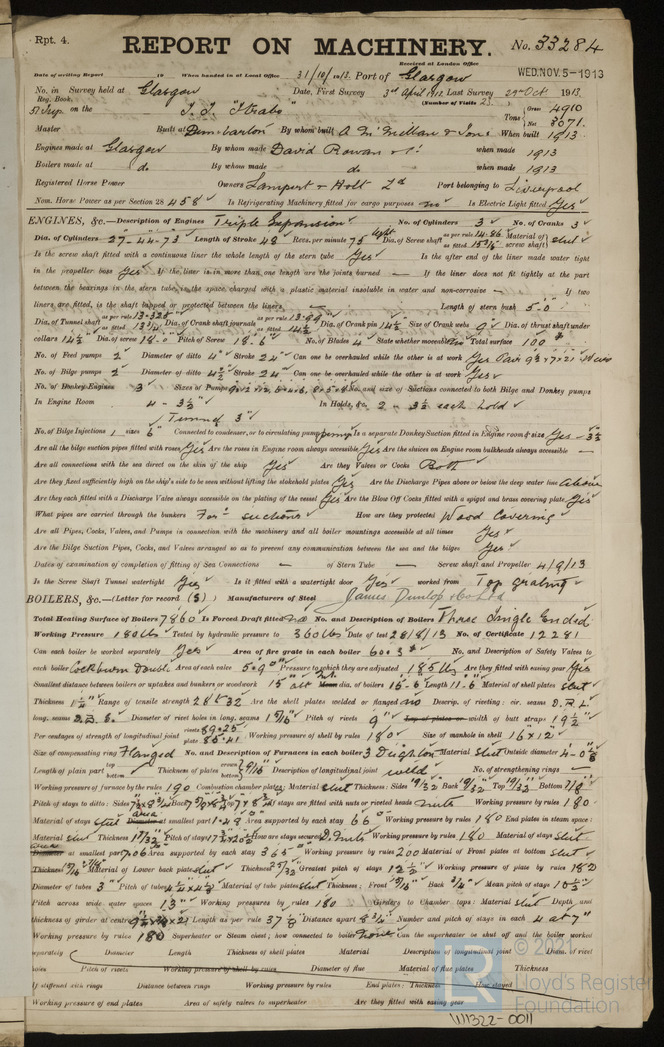 Rpt. 4.
REPORT ON MACHINERY. No. 33284
Received at London Office WED. NOV. 5-1913
Date of writing Report 19 When handed in at Local Office 31/10/1913 Port of Glasgow
No. in Survey held at Glasgow Date, First Survey 3rd April 1912 Last Survey 29th Oct 1913
Reg. Book. (Number of Visits 23)
on the Tons Gross 4910 Net 3071
Master Built at Dumbarton By whom built A. McMillan & Son When built 1913
Engines made at Glasgow By whom made David Rowan & Co when made 1913
Boilers made at do By whom made do when made 1913
Registered Horse Power Owners Lamport & Holt Ld Port belonging to Liverpool
Nom. Horse Power as per Section 28 458 Is Refrigerating Machinery fitted for cargo purposes no Is Electric Light fitted Yes
ENGINES, &c.—Description of Engines Triple Expansion No. of Cylinders 3 No. of Cranks 3
Dia. of Cylinders 27-44-73 Length of Stroke 48 Revs. per minute 75 Dia. of Screw shaft as per rule 14.86 as fitted Material of screw shaft steel
Is the screw shaft fitted with a continuous liner the whole length of the stern tube Yes Is the after end of the liner made water tight
in the propeller boss Yes If the liner is in more than one length are the joints burned — If the liner does not fit tightly at the part
between the bearings in the stern tube, is the space charged with a plastic material insoluble in water and non-corrosive — If two
liners are fitted, is the shaft lapped or protected between the liners — Length of stern bush 5-0"
Dia. of Tunnel shaft as per rule 13.325 as fitted 13 3/4 Dia. of Crank shaft journals as per rule 13.99 as fitted 14 1/2 Dia. of Crank pin 14 1/2 Size of Crank webs 9" Dia. of thrust shaft under
collars 14 1/2 Dia. of screw 18-0" Pitch of Screw 18-6" No. of Blades 4 State whether moveable Total surface 100
No. of Feed pumps 2 Diameter of ditto 4" Stroke 24" Can one be overhauled while the other is at work Yes Pair 9 1/2 x 7 x 21 Weirs
No. of Bilge pumps 2 Diameter of ditto 4 1/2 Stroke 24" Can one be overhauled while the other is at work Yes
No. of Donkey Engines 3 Sizes of Pumps No. and size of Suctions connected to both Bilge and Donkey pumps
In Engine Room 4 - 3 1/2" In Holds, &c. 2 - 3 1/2 each hold
Tunnel 3"
No. of Bilge Injections 1 sizes 6" Connected to condenser, or to circulating pump pump Is a separate Donkey Suction fitted in Engine room & size Yes - 3 1/2
Are all the bilge suction pipes fitted with roses Yes Are the roses in Engine room always accessible Yes Are the sluices on Engine room bulkheads always accessible —
Are all connections with the sea direct on the skin of the ship Yes Are they Valves or Cocks Both
Are they fixed sufficiently high on the ship's side to be seen without lifting the stokehold plates Yes Are the Discharge Pipes above or below the deep water line Above
Are they each fitted with a Discharge Valve always accessible on the plating of the vessel Yes Are the Blow Off Cocks fitted with a spigot and brass covering plate Yes
What pipes are carried through the bunkers For'd suctions How are they protected Wood Covering
Are all Pipes, Cocks, Valves, and Pumps in connection with the machinery and all boiler mountings accessible at all times Yes
Are the Bilge Suction Pipes, Cocks, and Valves arranged so as to prevent any communication between the sea and the bilges Yes
Dates of examination of completion of fitting of Sea Connections — of Stern Tube — Screw shaft and Propeller 4/9/13
Is the Screw Shaft Tunnel watertight Yes Is it fitted with a watertight door Yes worked from Top grating
BOILERS, &c.—(Letter for record (S)) Manufacturers of Steel James Dunlop & Co Ltd
Total Heating Surface of Boilers 7860 Is Forced Draft fitted no No. and Description of Boilers Three Single Ended
Working Pressure 180 lbs Tested by hydraulic pressure to 360 lbs Date of test 28/8/13 No. of Certificate 12281
Can each boiler be worked separately Yes Area of fire grate in each boiler 60.3 No. and Description of Safety Valves to
each boiler Cockburn Double Area of each valve 5.9" Pressure to which they are adjusted 185 lbs Are they fitted with easing gear Yes
Smallest distance between boilers or uptakes and bunkers or woodwork 15" dia. of boilers 15-6 Length 11-6 Material of shell plates steel
Thickness Range of tensile strength 28 & 32 Are the shell plates welded or flanged no Descrip. of riveting: cir. seams D.R.L
long. seams Diameter of rivet holes in long. seams 1 5/16" Pitch of rivets 9" Lap of plates or width of butt straps 19 1/2"
Per centages of strength of longitudinal joint rivets 89.25 plate 85.41 Working pressure of shell by rules 180 Size of manhole in shell 16 x 12
Size of compensating ring Flanged No. and Description of Furnaces in each boiler 3 Deighton Material steel Outside diameter
Length of plain part top bottom Thickness of plates crown bottom 9/16 Description of longitudinal joint weld No. of strengthening rings —
Working pressure of furnace by the rules 190 Combustion chamber plates: Material steel Thickness: Sides 19/32 Back 19/32 Top 19/32 Bottom 7/8
Pitch of stays to ditto: Sides Back Top If stays are fitted with nuts or riveted heads nuts Working pressure by rules 180
Material of stays steel area Diameter at smallest part 1.48 Area supported by each stay 66 Working pressure by rules 180 End plates in steam space:
Material steel Thickness Pitch of stays How are stays secured D. Nuts Working pressure by rules 180 Material of stays steel
area Diameter at smallest part 7.06 Area supported by each stay 365 Working pressure by rules 200 Material of Front plates at bottom steel
Thickness Material of Lower back plate steel Thickness 25/32 Greatest pitch of stays 12 1/2 Working pressure of plate by rules 182
Diameter of tubes 3" Pitch of tubes Material of tube plates steel Thickness: Front 15/16" Back 3/4" Mean pitch of stays
Pitch across wide water spaces 13" Working pressures by rules 180 Girders to Chamber tops: Material steel Depth and
thickness of girder at centre Length as per rule 37 1/8 Distance apart 8 3/4" Number and pitch of stays in each 4 at 7"
Working pressure by rules 180 Superheater or Steam chest; how connected to boiler none Can the superheater be shut off and the boiler worked
separately Diameter Length Thickness of shell plates Material Description of longitudinal joint Diam. of rivet
holes Pitch of rivets Working pressure of shell by rules Diameter of flue Material of flue plates Thickness
If stiffened with rings Distance between rings Working pressure by rules End plates: Thickness How stayed
Working pressure of end plates Area of safety valves to superheater Are they fitted with easing gear
© 2021
LR Lloyd's Register
Foundation
W1322-0011